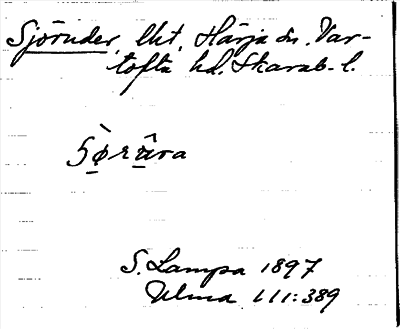 Sjöruder, lht, Härja sn. Var-
tofta hd. Skarab. l.
Sø̠̀rŭ̠ra
S. Lampa 1897
Ulma 111:389